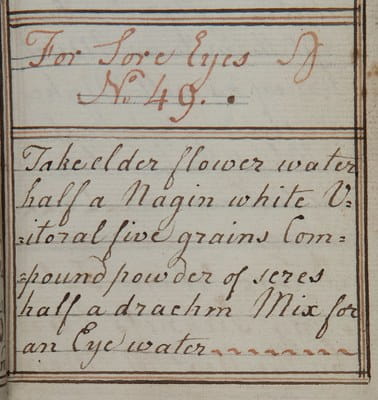 For Sore Eyes
No 49..
Take elder flower water
half a Nagin white V=
=itoral five grains Com=
=pound powder of seres
half a drachm Mix for
an Eye water